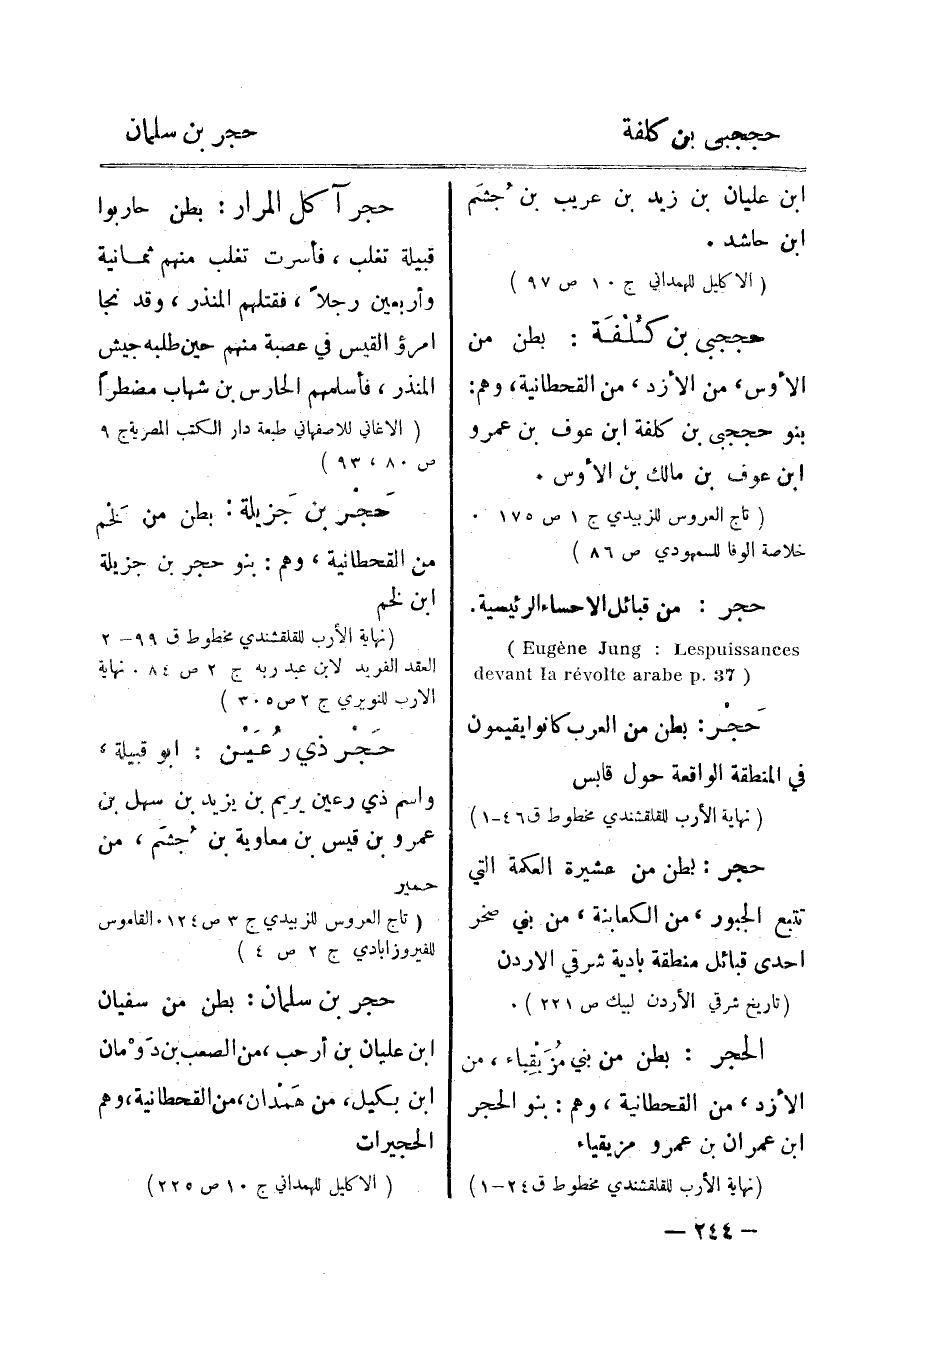 ححجبى بن كلفة
حجر بن سلمان
ابن عليان بن زيد بن عريب بن جُشَم
ابن حاشد .
( الاكليل للهمداني ج ١٠ ص ٩٧ )
ححجبى بن كُلْفَة : بطن من
الأوس، من الأزد، من القحطانية، وهم:
بنو ححجبى بن كلفة ابن عوف بن عمرو
ابن عوف بن مالك بن الأوس .
( تاج العروس للزبيدي ج ١ ص ١٧٥ .
خلاصة الوفا للسمهودي ص ٨٦ )
حجر : من قبائل الاحساء الرئيسية.
( Eugène Jung : Lespuissances
devant la révolte arabe p. 37 )
حَجْر: بطن من العرب كانوا يقيمون
في المنطقة الواقعة حول قابس
( نهاية الأرب للقلقشندي مخطوط ق ٤٦-١ )
حجر : بطن من عشيرة العكمة التي
تتبع الجبور، من الكعابنة، من بني صخر
احدى قبائل منطقة بادية شرقي الاردن
(تاريخ شرقي الأردن لبيك ص ٢٢١ ) .
الحجر : بطن من بني مُزَيْقِياء ، من
الأزد، من القحطانية ، وهم : بنو الحجر
ابن عمران بن عمرو مزيقياء
(نهاية الأرب للقلقشندي مخطوط ق ٢٤-١ )
حجر آكل المرار : بطن حاربوا
قبيلة تغلب ، فأسرت تغلب منهم ثمانية
وأربعين رجلاً ، فقتلهم المنذر ، وقد نجا
امرؤ القيس في عصبة منهم حين طلبه جيش
المنذر ، فأسلمهم الحارس بن شهاب مضطراً
( الاغاني للاصفهاني طبعة دار الكتب المصرية ج ٩
ص ٨٠ ، ٩٣ )
حَجْر بن جَزيلة : بطن من لَخم
من القحطانية ، وهم : بنو حجر بن جزيلة
ابن لخم
(نهاية الأرب للقلقشندي مخطوط ق ٩٩-٢
العقد الفريد لابن عبد ربه ج ٢ ص ٨٤ . نهاية
الارب للنويري ج ٢ ص ٣٠٥ )
حَجْر ذي رُعَيْن : ابو قبيلة ،
واسم ذي رعين يريم بن يزيد بن سهل بن
عمرو بن قيس بن معاوية بن جُشَم ، من
حمير
( تاج العروس للزبيدي ج ٣ ص ١٢٤ . القاموس
للفيروزابادي ج ٢ ص ٤ )
حجر بن سلمان : بطن من سفيان
ابن عليان بن أرحب ،من الصعب بن دَوْمان
ابن بكيل، من هَمْدان،من القحطانية،وهم
الحجيرات
( الاكليل للهمداني ج ١٠ ص ٢٢٥ )
— ٢٤٤ —